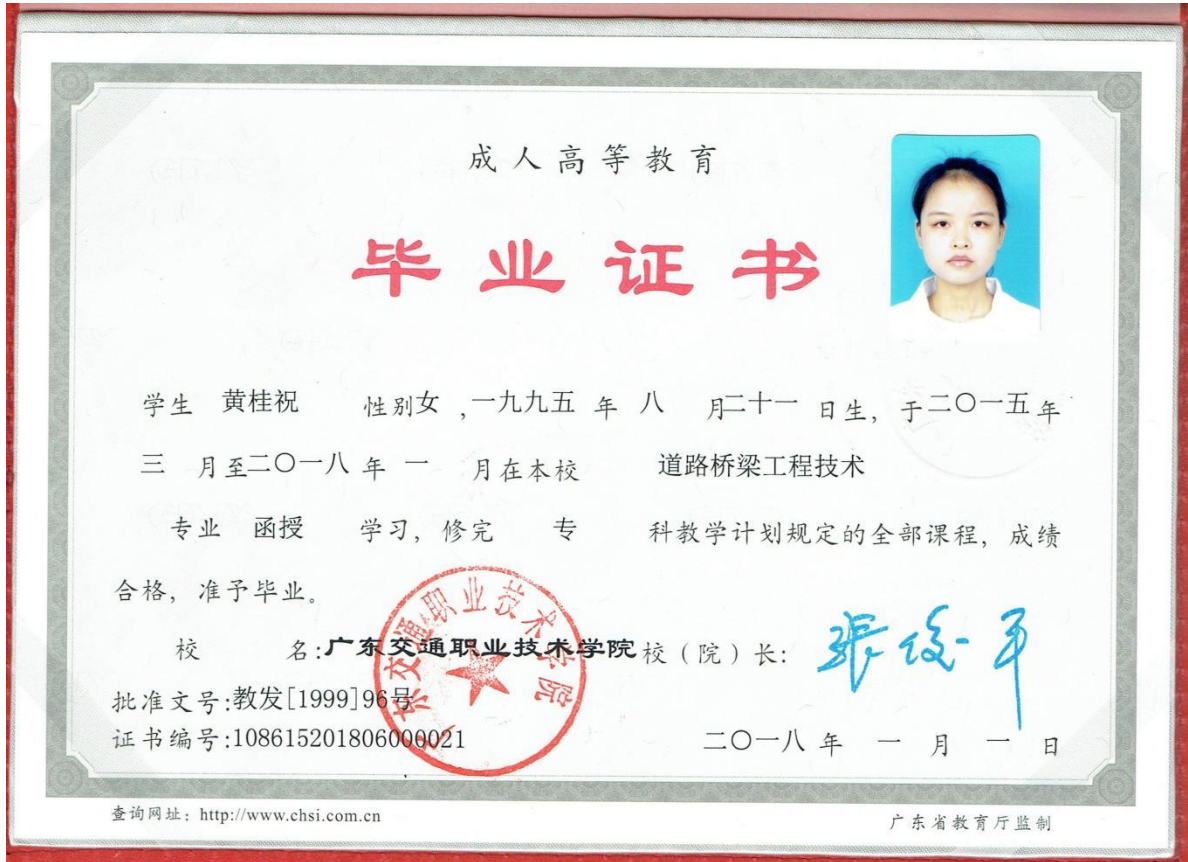 成人高等教育
毕业证书
学生 黄桂祝 性别女 ,一九九五 年 八 月二十一 日生, 于二〇一五年
三 月至二〇一八 年 一 月在本校 道路桥梁工程技术
专业 函授 学习, 修完 专 科教学计划规定的全部课程, 成绩
合格, 准予毕业。
校 名:广东交通职业技术学院 校(院)长: 张俊平
批准文号:教发[1999]96号
证书编号:108615201806000021 二〇一八 年 一 月 一 日
广东交通职业技术学院
查询网址: http://www.chsi.com.cn 广东省教育厅监制